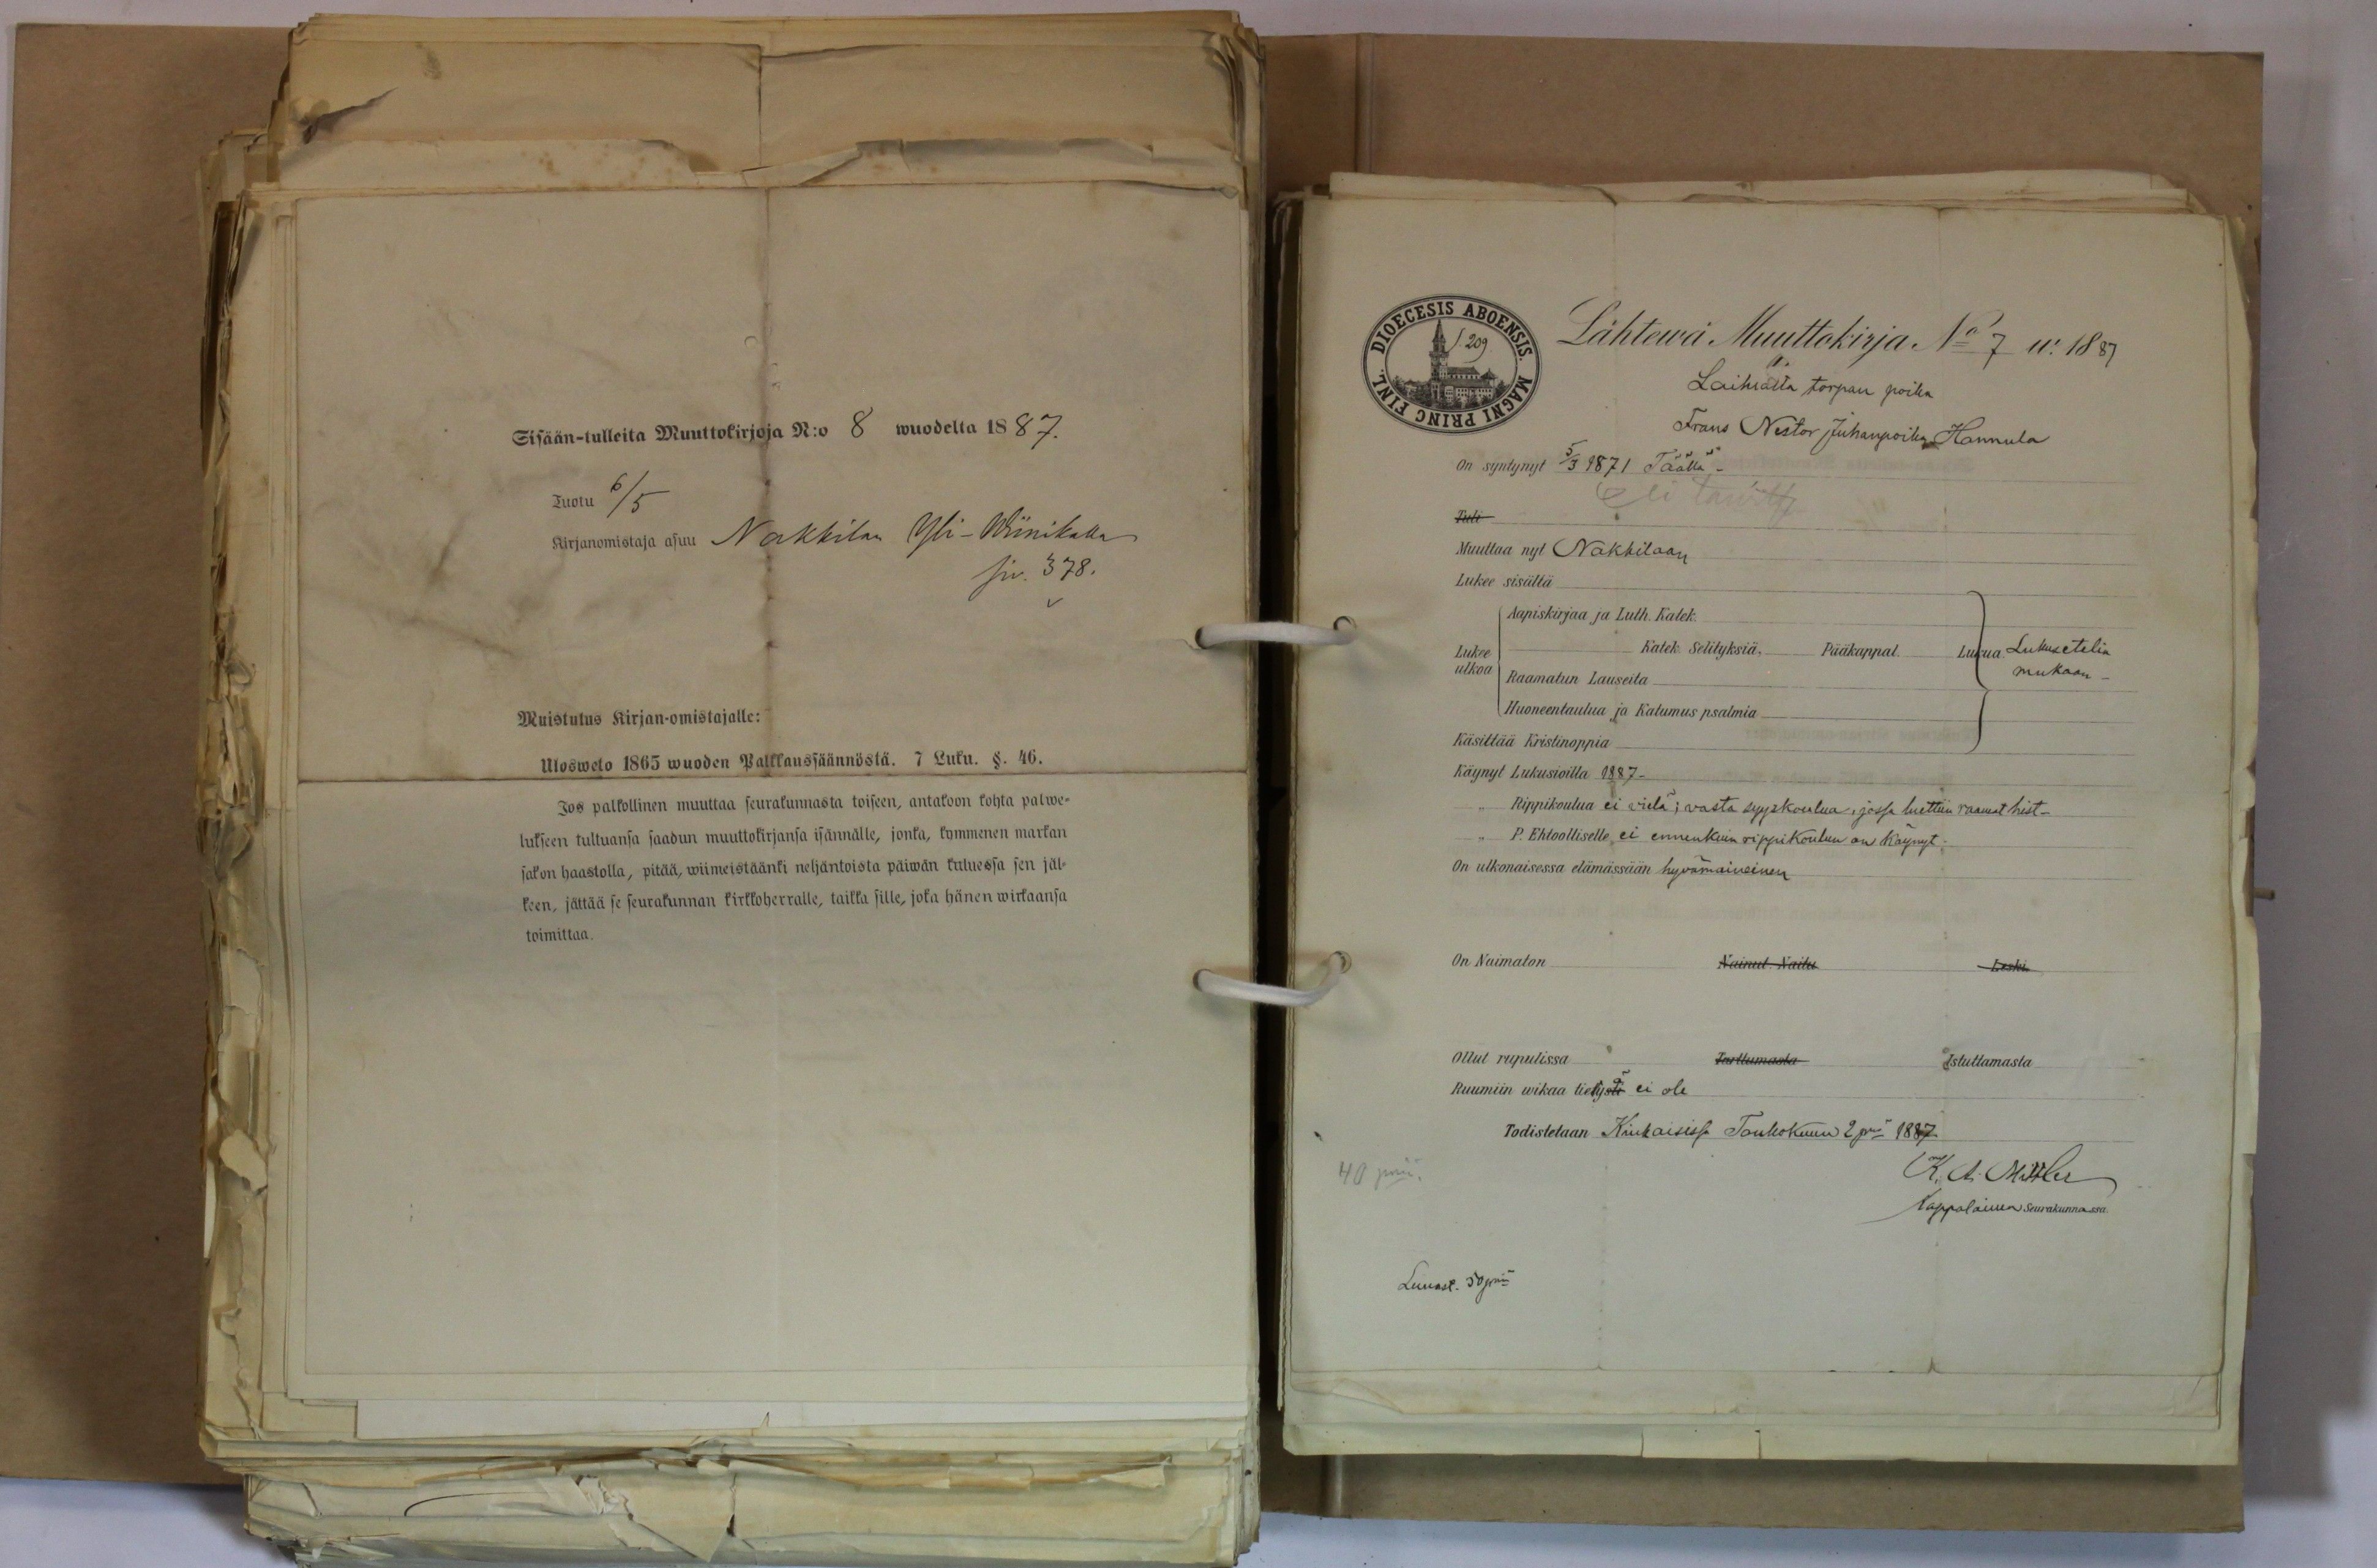 Sisään-tulleita Muuttokirjoja N:o 8 wuodelta 1887.
Tuotu 6/5
Kirjanomistaja asuu Nakkilan Yli-Wiinikalla
siv. 378.
Muistutus Kirjan-omistajalle:
Ulosweto 1865 wuoden Palkkaussäännöstä. 7 Luku. §. 46.
Jos palkollinen muuttaa seurakunnasta toiseen, antakoon kohta palwe-
lukseen tultuansa saadun muuttokirjansa isännälle, jonka, kymmenen markan
sakon haastolla, pitää, wiimeistäänki neljäntoista päiwän kuluessa sen jäl-
keen, jättää se seurakunnan kirkkoherralle, taikka sille, joka hänen wirkaansa
toimittaa.
DIOECESIS ABOENSIS. MAGNI PRINC FINL.
209
Lähtewä Muuttokirja No 7 w. 1887
torpan poika
Frans Nestor Juhanpoika Hannula
On syntynyt 5/3 1871 Täällä -
ei
Tuli
Muuttaa nyt Nakkilaan
Lukee sisältä
Aapiskirjaa ja Luth. Katek.
Lukee ulkoa
Katek. Selityksiä, Pääkappal. Lukua Lukusetelin
mukaan -
Raamatun Lauseita
Huoneentaulua ja Katumus psalmia
Käsittää Kristinoppia
Käynyt Lukusioilla 1887-
" Rippikoulua ei vielä; vasta syyskoulua, jossa luettiin raamat hist-
" P. Ehtoolliselle ei ennenkuin rippikoulun on käynyt.
On ulkonaisessa elämässään hyvämaineinen
On Naimaton Nainut Naitu Leski
Ollut rupulissa Tarttumasta Istuttamasta
Ruumiin wikaa tietysti ei ole
Todistetaan Kiukaisissa Toukokuun 2 pnä 1887
K. A.
Kappalainen Seurakunnassa.
40 pniä.
Lunast. 50 pniä